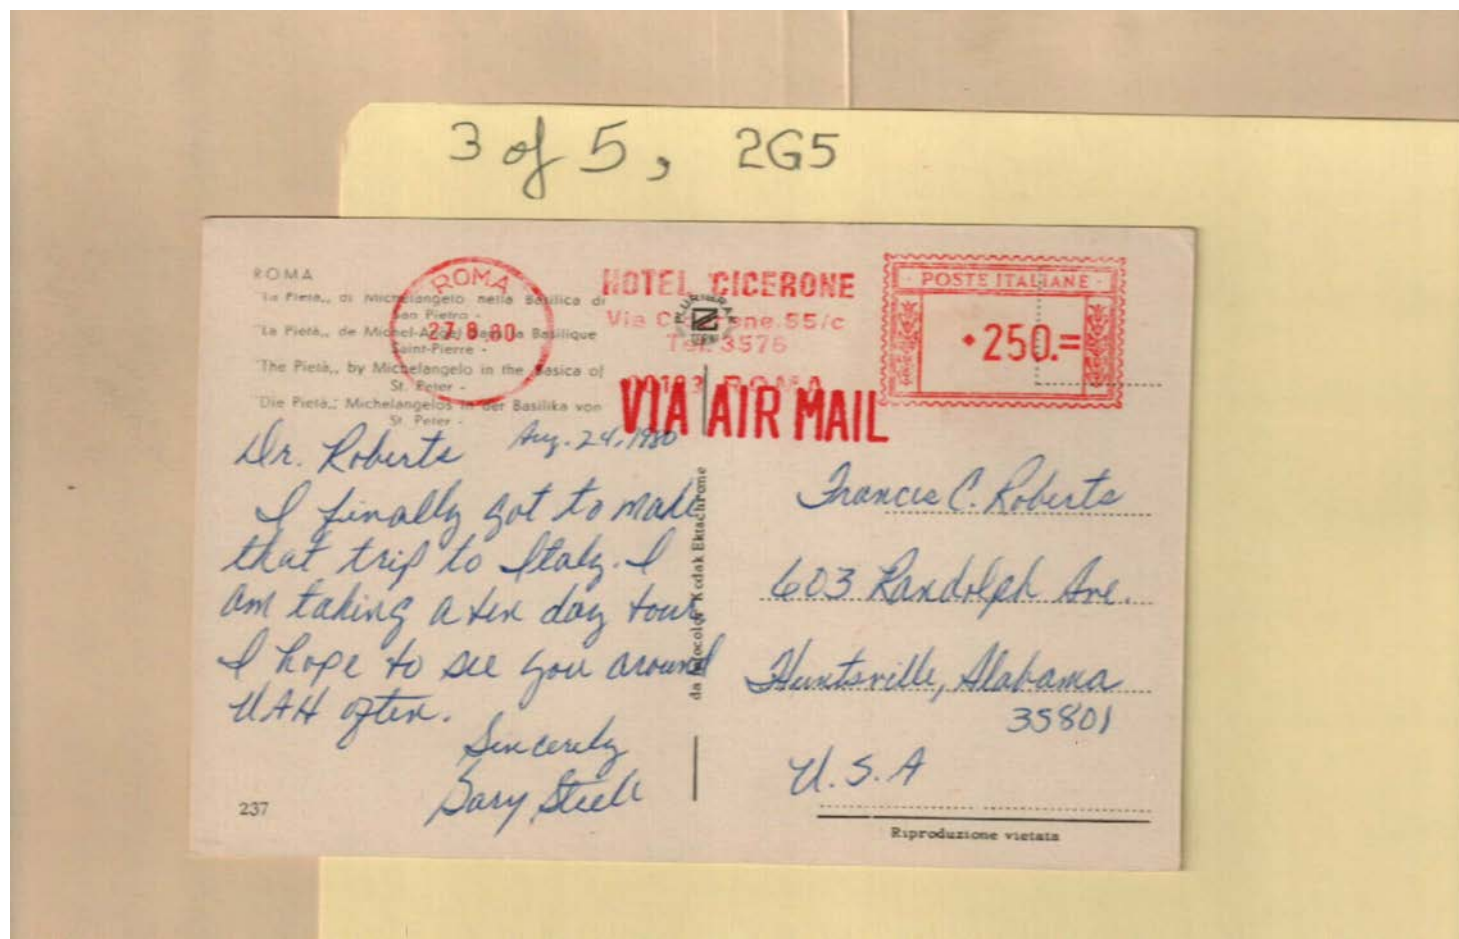 3 of 5, 2G5
ROMA
"La Pietà,, di Michelangelo nella Basilica di
San Pietro -
"La Pietà,, de Michel-Ange dans la Basilique
Saint-Pierre -
"The Pietà,, by Michelangelo in the Basica of
St. Peter -
"Die Pietà,, Michelangelos in der Basilika von
St. Peter -
ROMA
27 8 80
HOTEL CICERONE
Via Cicerone 55/c
Tel. 3576
ROMA
POSTE ITALIANE
250.=
VIA AIR MAIL
Aug. 24, 1980
Dr. Roberts
I finally got to make
that trip to Italy. I
am taking a ten day tour
I hope to see you around
UAH often.
Sincerely
Gary Steele
237
da Kodak Ektachrome
Frances C. Roberts
603 Randolph Ave.
Huntsville, Alabama
35801
U.S.A
Riproduzione vietata